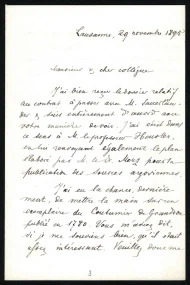 Lausanne, 29 novembre 1895
Monsieur & cher collègue
J'ai bien reçu le dossier relatif
au contrat à passer avec M. Sauerländer
& suis entièrement d'accord avec
votre manière de voir. J'ai écrit dans
ce sens à M. le professeur Heusler,
en lui renvoyant également le plan
élaboré par M. le Dr pour la
publication des sources argoviennes.
J'ai eu la chance, dernièrement,
de mettre la main sur un
exemplaire du Coutumier de Grandson
publié en 1780. Vous m'aviez dit,
si je me souviens bien, qu'il était
assez intéressant. Veuillez donc me
3